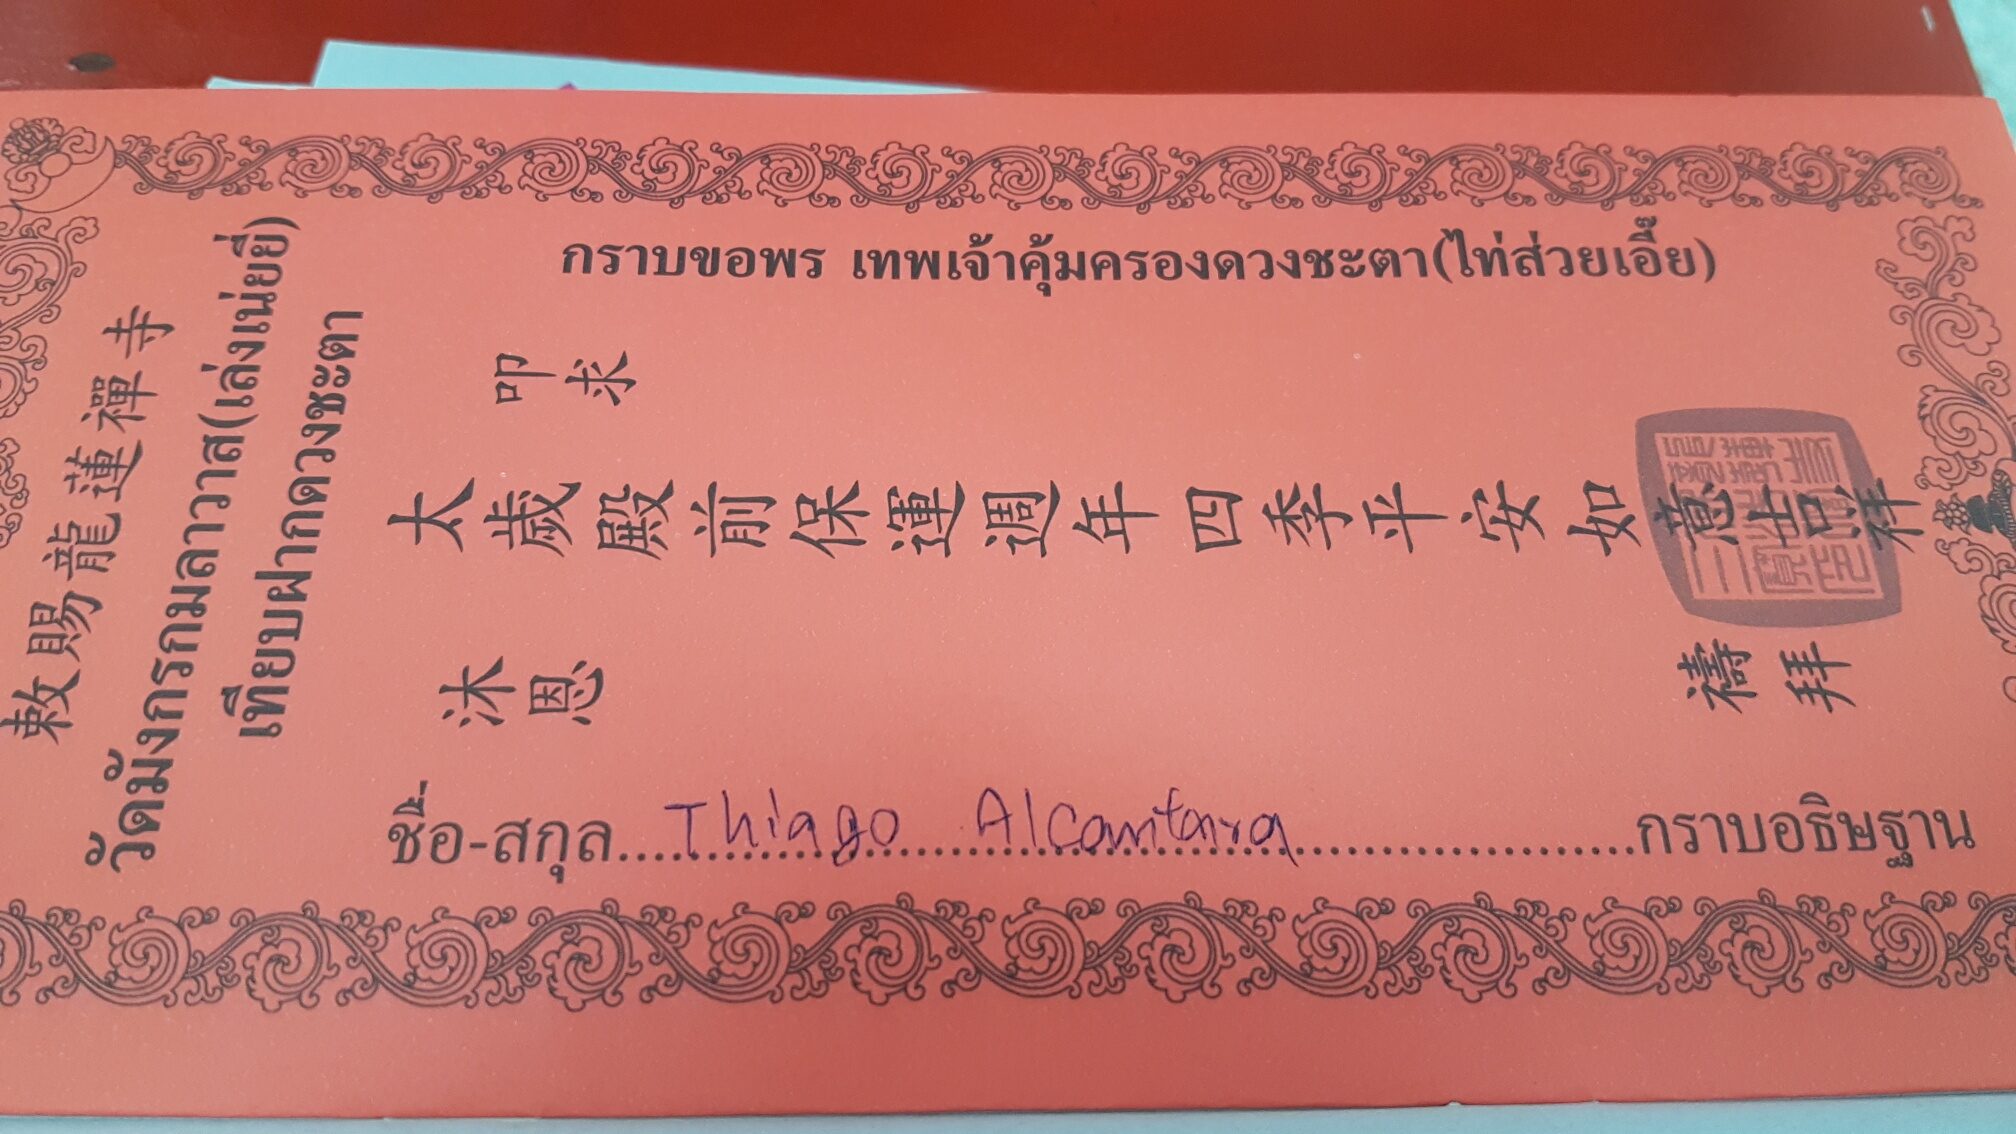 敕賜龍蓮禪寺
วัดมังกรกมลาวาส(เล่งเน่ยยี่)
เทียบฝากดวงชะตา
กราบขอพร เทพเจ้าคุ้มครองดวงชะตา(ไท่ส่วยเอี๊ย)
叩求
太歲殿前保運週年四季平安如意吉祥
沐恩
禱拜
ชื่อ-สกุล....Thiago Alcantara....กราบอธิษฐาน